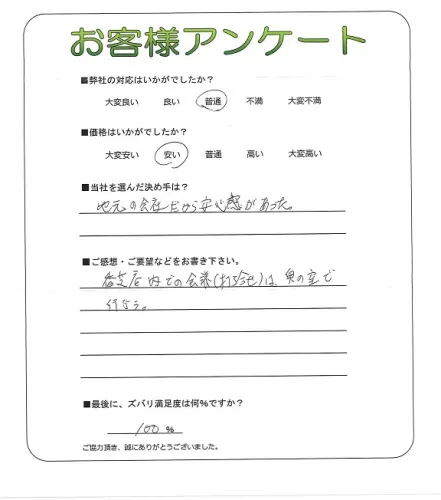 お客様アンケート
■弊社の対応はいかがでしたか?
大変良い 良い 普通 不満 大変不満
■価格はいかがでしたか?
大変安い 安い 普通 高い 大変高い
■当社を選んだ決め手は?
地元の会社だから安心感があった。
■ご感想・ご要望などをお書き下さい。
内での会議(打ち合せ)は、奥の室で
行なう。
■最後に、ズバリ満足度は何%ですか?
100 %
ご協力頂き、誠にありがとうございました。